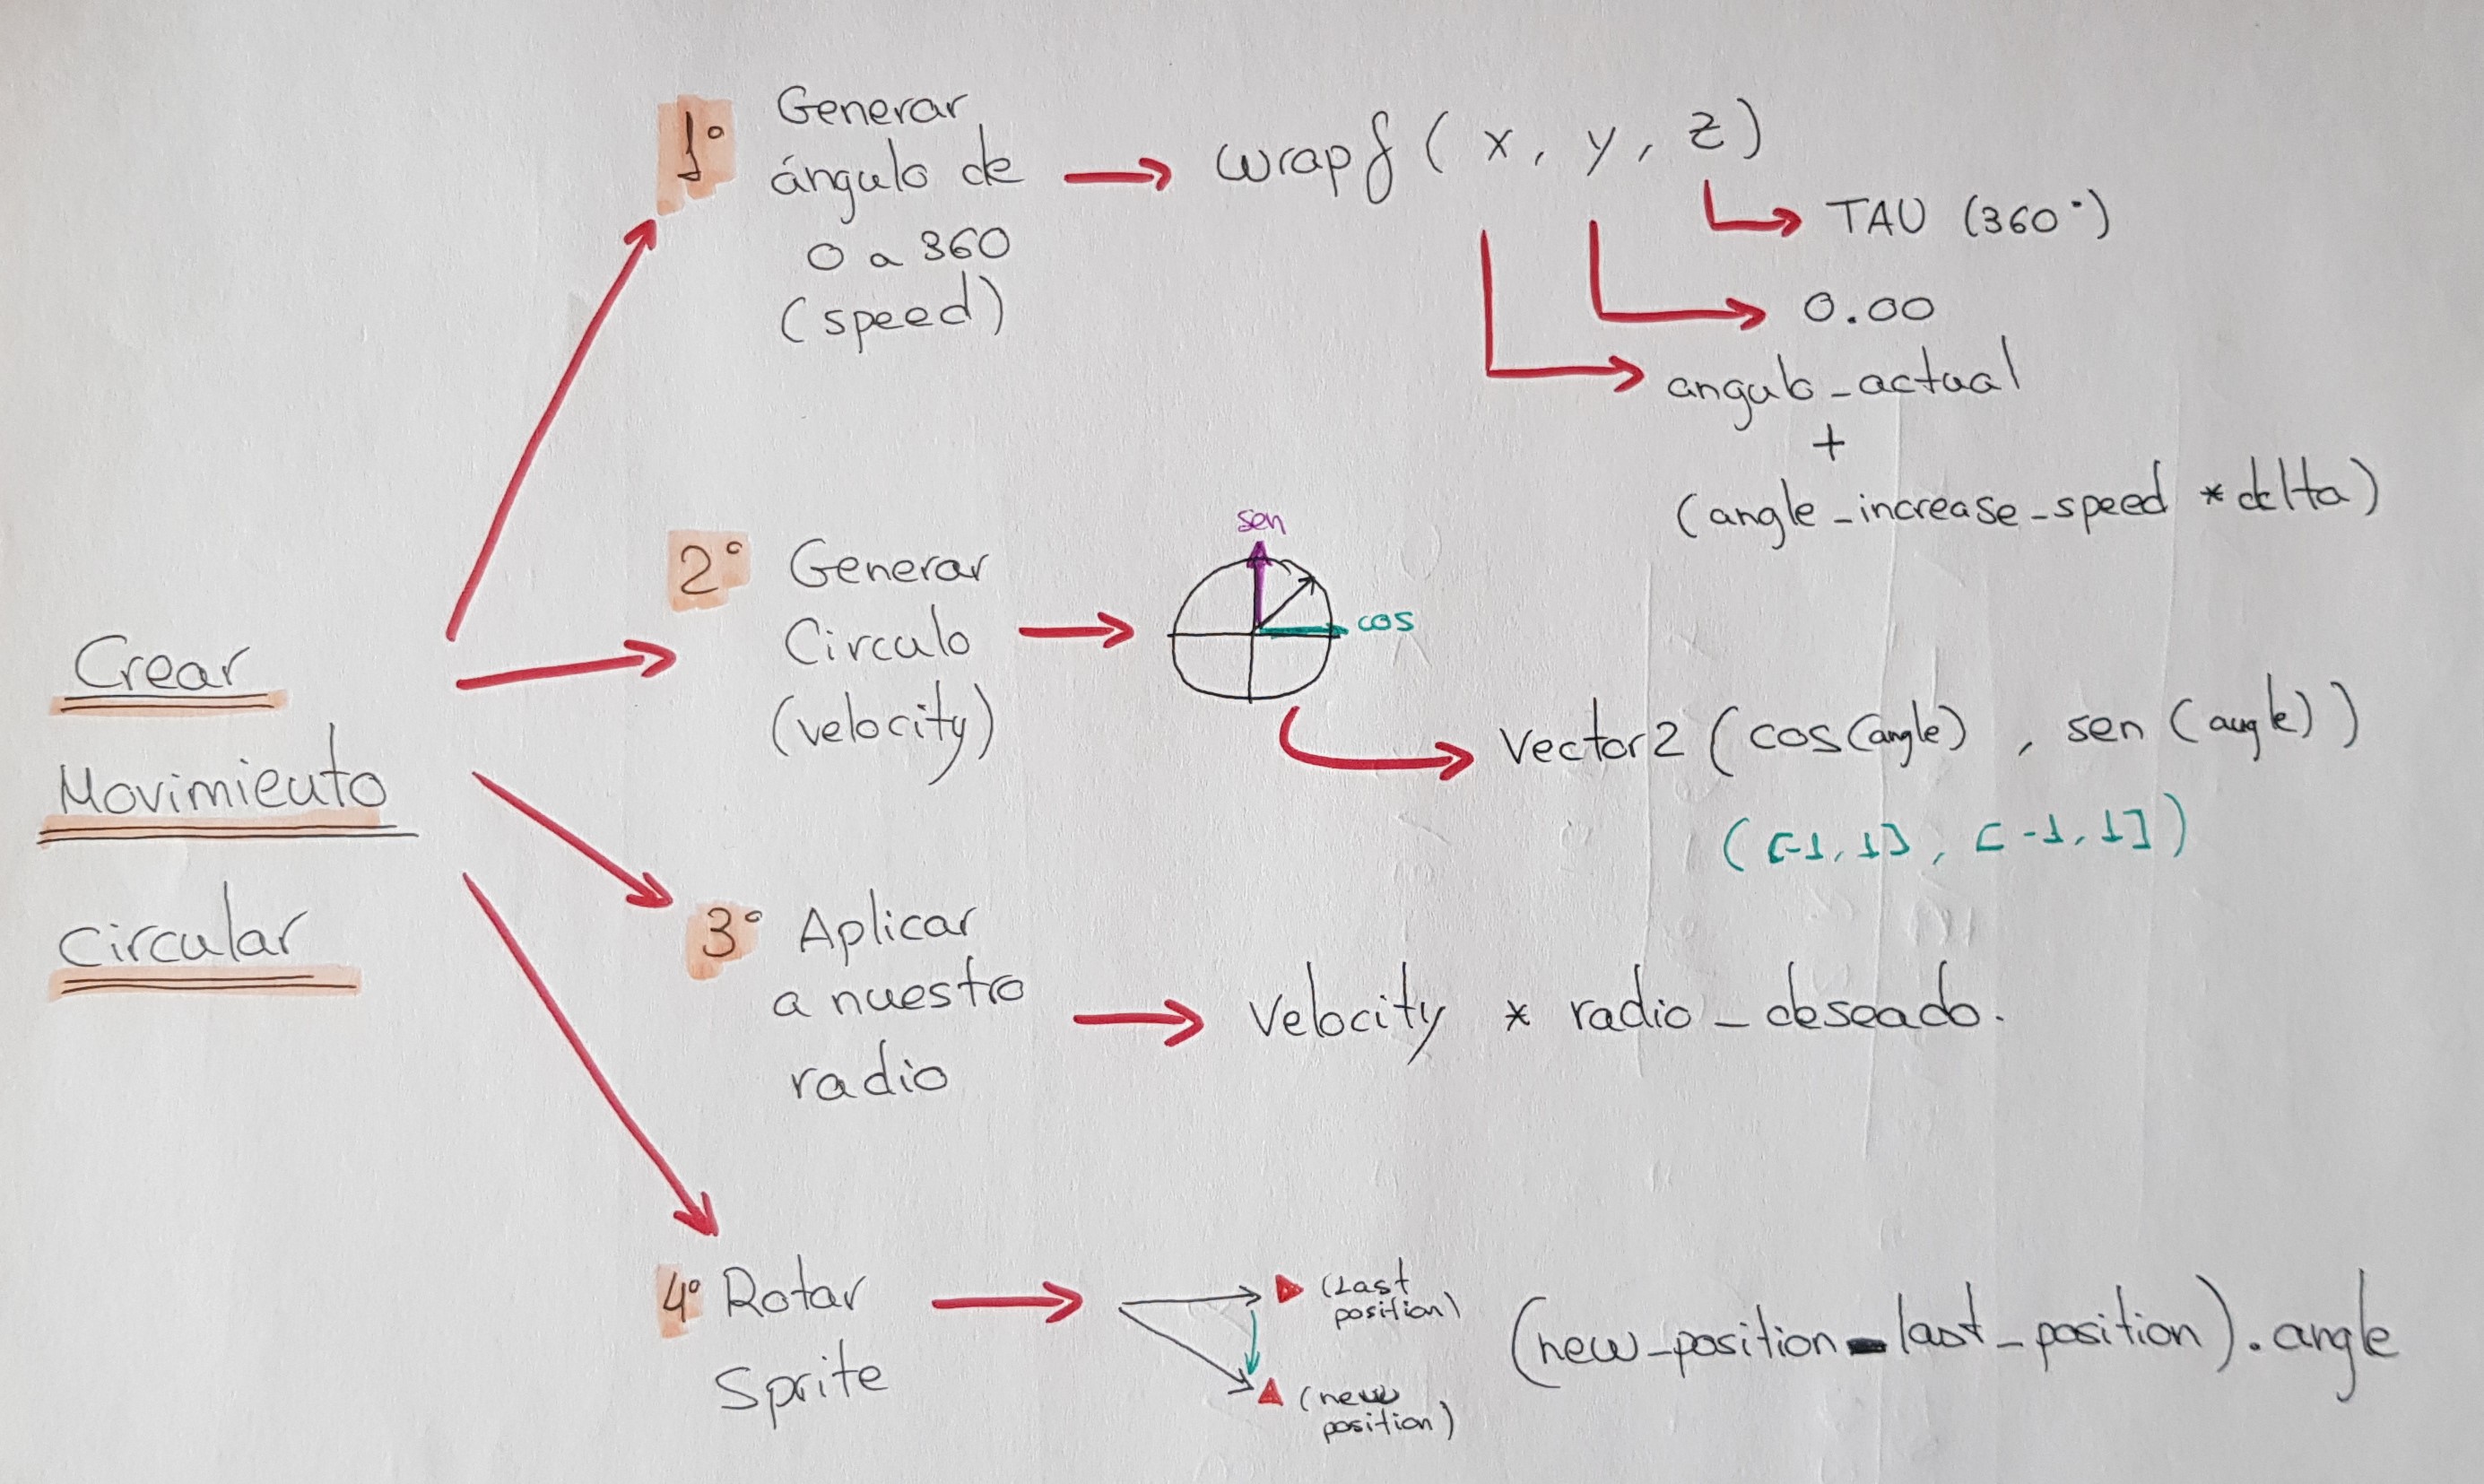 Crear
Movimiento
circular
1° Generar
ángulo de
0 a 360
(speed)
wrapf ( x, y, z )
TAU (360°)
0.00
angulo_actual
+
(angle_increase_speed * delta)
2° Generar
Circulo
(velocity)
sen
cos
Vector2 ( cos(angle) , sen (angle) )
( [-1, 1] , [ -1, 1 ] )
3° Aplicar
a nuestro
radio
Velocity * radio_deseado.
4° Rotar
Sprite
(Last
position)
(new
position)
(new_position - last_position).angle